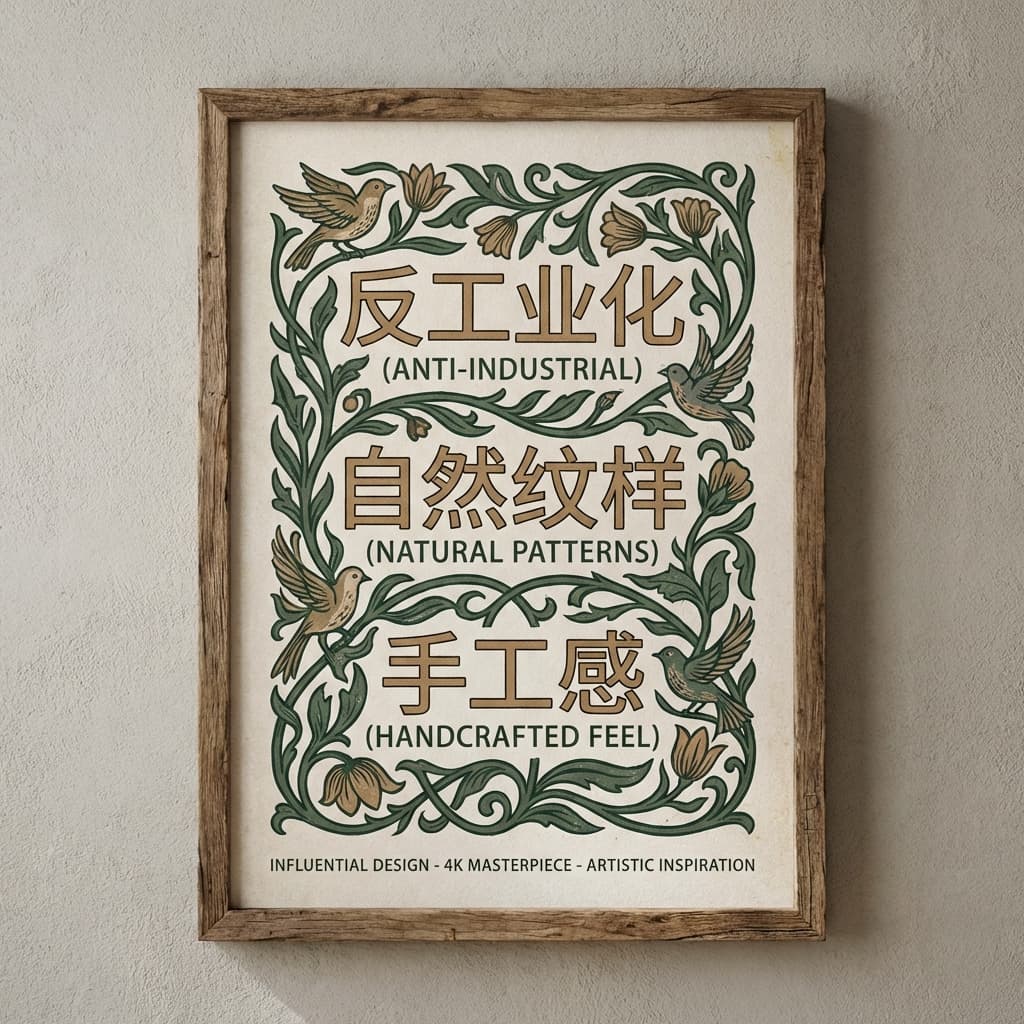 反工业化
(ANTI-INDUSTRIAL)
自然纹样
(NATURAL PATTERNS)
手工感
(HANDCRAFTED FEEL)
INFLUENTIAL DESIGN - 4K MASTERPIECE - ARTISTIC INSPIRATION